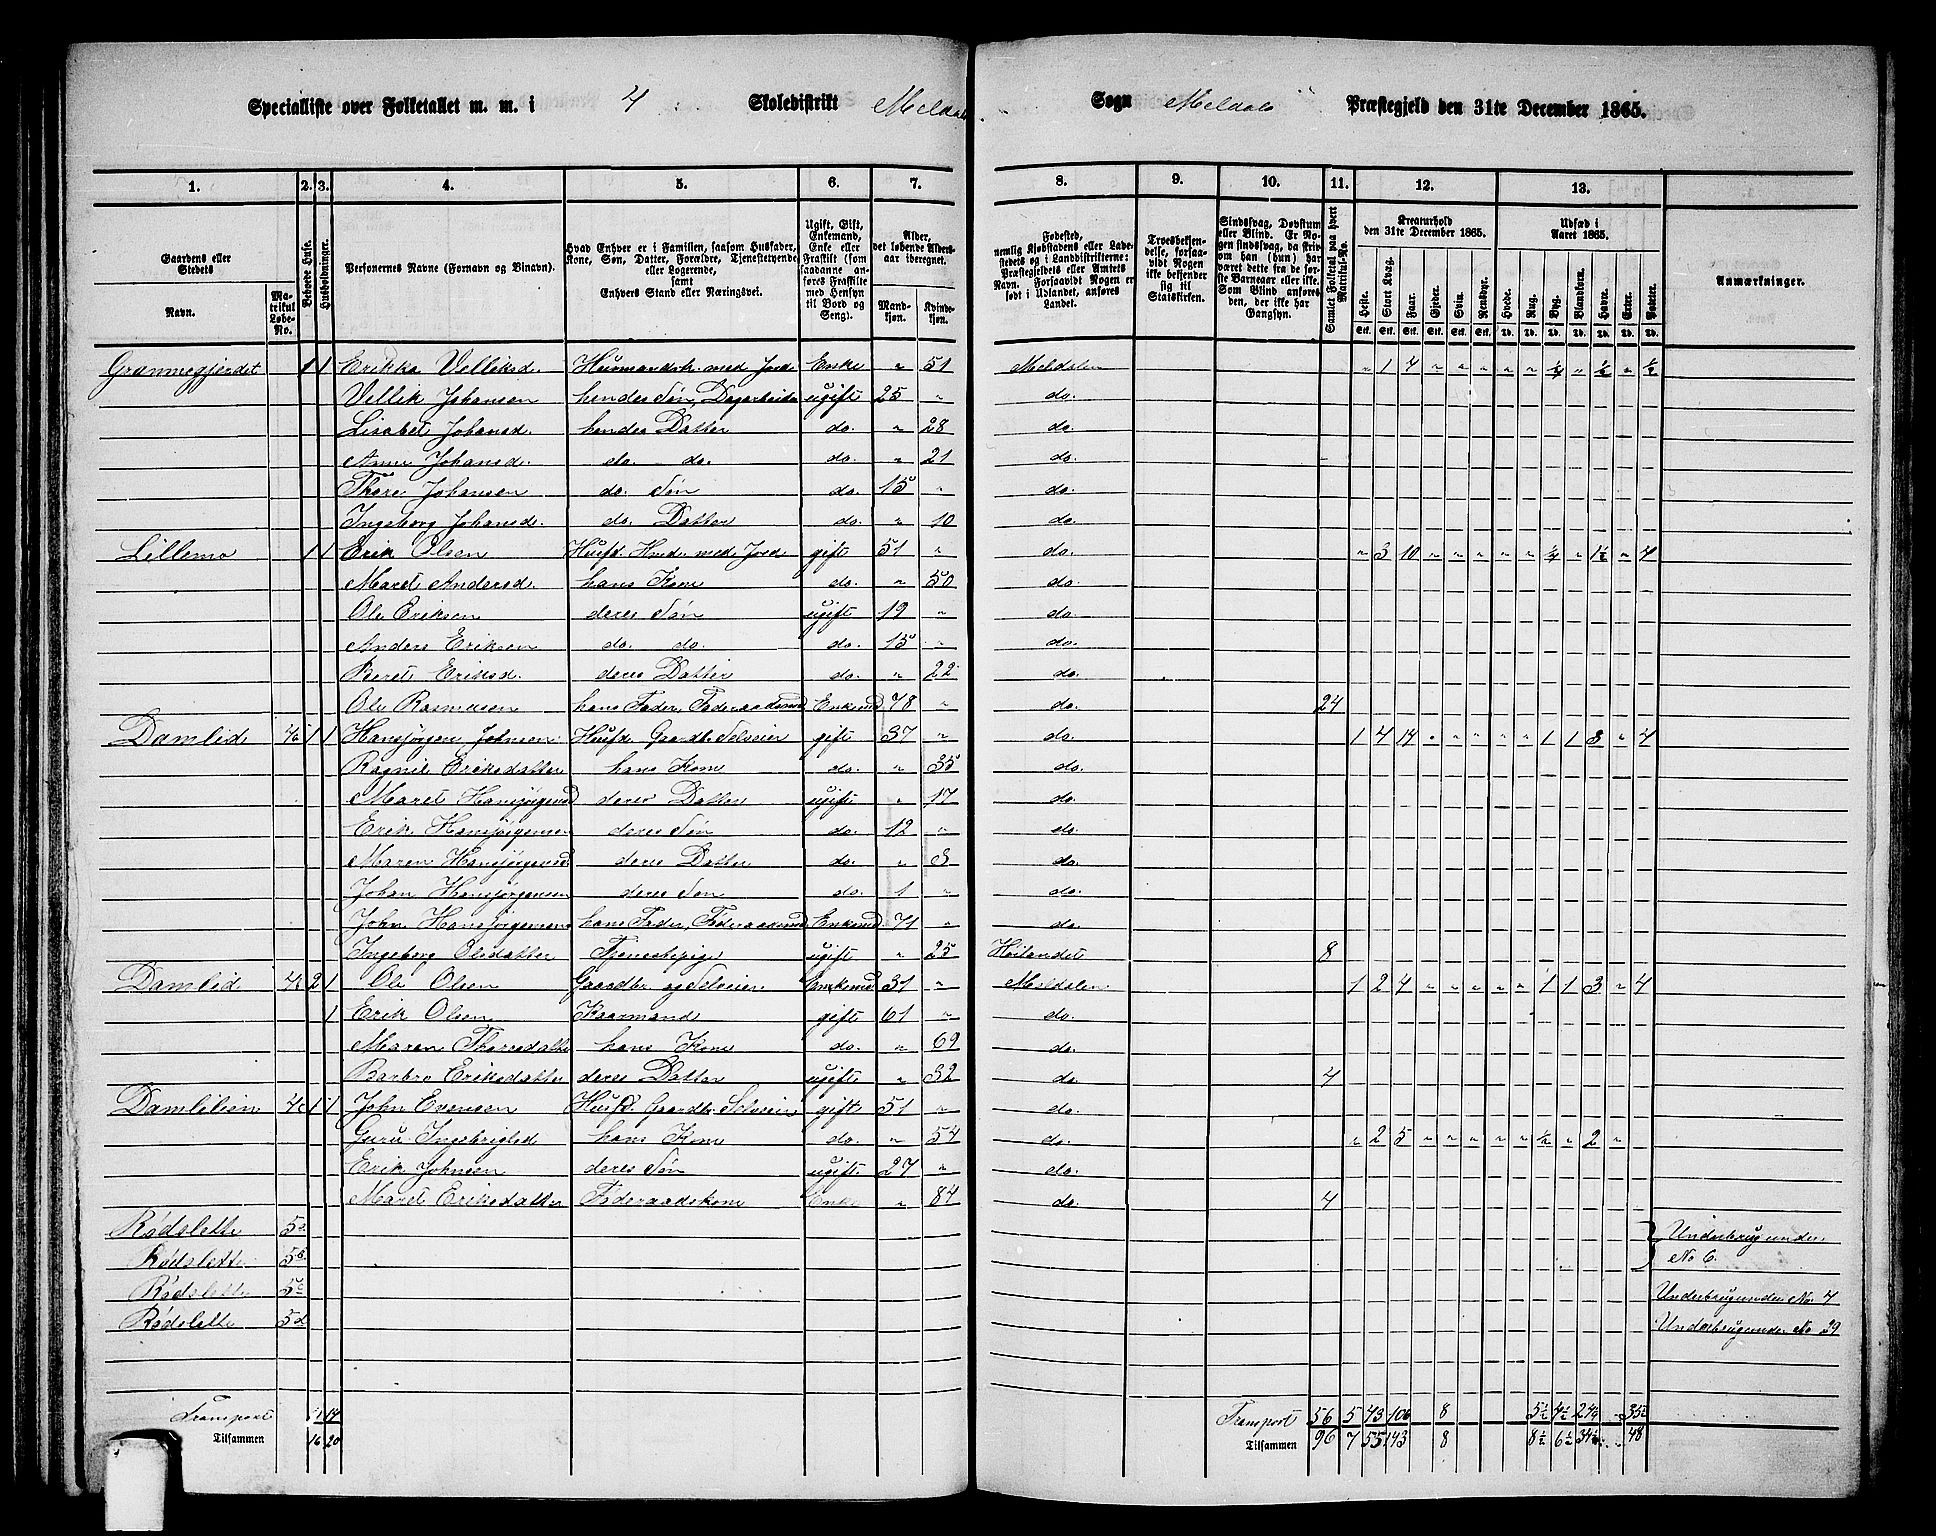 Specialliste over Folketallet m. m. i 4 Skoledistrikt Meldal
Sogn Meldals Præstegjeld den 31te December 1865.
1. 2. 3. 4. 5. 6. 7. 8. 9. 10. 11. 12. 13.
Gaardens eller Stedets
Navn.
Matrikul Løbe-No.
Beboede Huse.
Husholdninger.
Personernes Navne (Fornavn og Binavn).
Hvad Enhver er i Familien, saasom Husfader, Kone, Søn, Datter, Forældre, Tjenestetyende eller Logerende, samt Enhvers Stand eller Næringsvei.
Ugift, Gift, Enkemand, Enke eller Fraskilt (som saadanne anføres Fraskilte med Hensyn til Bord og Seng).
Alder, det løbende Aldersaar iberegnet.
Mandkjøn. Kvindekjøn.
Fødested, nemlig Kjøbstadens eller Ladestedets og i Landdistrikterne: Præstegjeldets eller Amtets Navn. Forsaavidt Nogen er født i Udlandet, anføres Landet.
Troesbekjendelse, forsaavidt Nogen ikke bekjender sig til Statskirken.
Sindssvag, Døvstum eller Blind. Er Nogen sindssvag, da hvorvidt han (hun) har været dette fra de første Barneaar eller ikke. Som Blind anføres den, der ikke har Gangsyn.
Samlet Folketal paa hvert Matrikul-No.
Kreaturhold den 31te December 1865.
Heste. Stort Kvæg. Faar. Gjeder. Svin. Rensdyr.
Udsæd i Aaret 1865.
Hvede. Rug. Byg. Blandkorn. Havre. Erter. Poteter.
Anmærkninger.
Granmogjerdet 1 1 Erikka Velliksd. Husmandsk. med Jord Enke " 51 Meldalen " 1 4 " " " " " 1/4 " 1/2 " 1/2
Vellik Johansen hendes Søn, Dagarbeider ugift 25 " do.
Lisabet Johansd. hendes Datter do. " 28 do.
Anne Johansd. do. do. do. " 21 do.
Thore Johansen do. Søn do. 15 " do.
Ingeborg Johansd. do. Datter do. " 10 do.
Lillemo 1 1 Erik Olsen Husfd. Husmd. med Jord gift 51 " do. " 3 10 " " " " " 1/4 " 1 1/2 " 4
Maret Andersd. hans Kone do. " 50 do.
Ole Eriksen deres Søn ugift 19 " do.
Anders Eriksen do. do. do. 15 " do.
Beret Eriksd. deres Datter do. " 22 do.
Ole Rasmusen hans Fader, Føderaadsmd Enkemd 78 " do. 24
Damlid 4a 1 1 Hansjørgen Johnsen Husfd. Gaardb. Selveier gift 37 " do. 1 4 14 " " " " " 1 1 3 " 4
Ragnil Eriksdatter hans Kone do. " 35 do.
Maret Hansjørgensd deres Datter ugift " 17 do.
Erik Hansjørgensen deres Søn do. 12 " do.
Maren Hansjørgensd deres Datter do. " 3 do.
Johan Hansjørgensen deres Søn do. 1 " do.
John Hansjørgensen hans Fader, Føderaadsmd Enkemd 71 " do.
Ingeborg Olsdatter Tjenestepige ugift " 25 Høilandet 8
Damlid 4b 2 1 Ole Olsen Gaardbr og Selveier Enkemd 31 " Meldalen 1 2 4 " " " " " 1 1 3 " 4
1 Erik Olsen Kaarmand gift 61 " do.
Maren Thoresdatter hans Kone do. " 69 do.
Barbro Eriksdatter deres Datter ugift " 32 do. 4
Damlilien 4c 1 1 John Evensen Husfd. Gaardbr. Selveier gift 51 " do.
Guru Ingebrigtsd hans Kone do. " 54 do. " 2 5 " " " " " 1/2 " 2 "
Erik Johnsen deres Søn ugift 27 " do.
Maret Eriksdatter Føderaadskone Enke " 84 do. 4
Rødslette 5a Underbrug under
Rødslette 5b No 6.
Rødslette 5c Underbrug under No 4
Rødslette 5d Underbrug under No 39
Transport 11 14 Transport 56 5 43 106 8 5 1/2 4 1/2 24 1/4 " 35 1/2
Tilsammen 16 20 Tilsammen 96 7 55 143 8 8 1/2 6 1/2 34 1/4 " 48